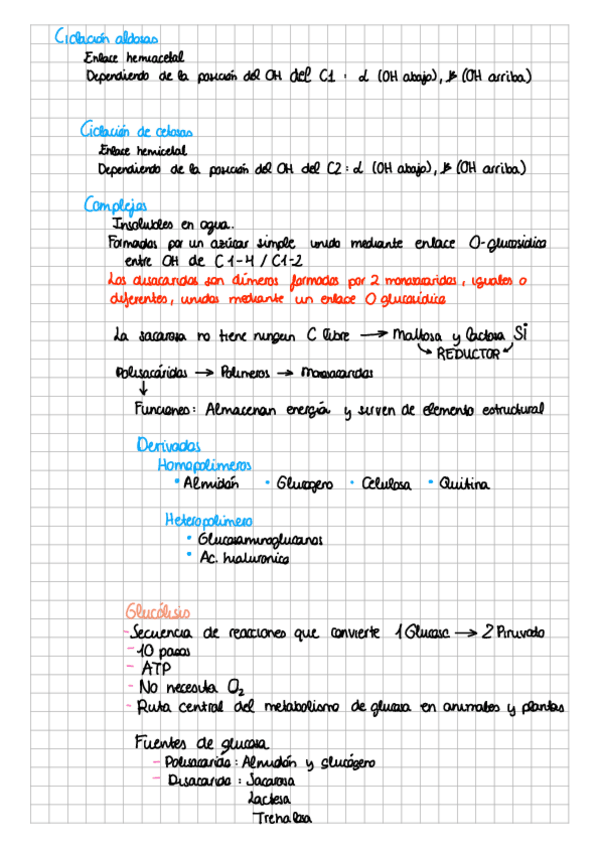 Ciclación aldosas
Enlace hemiacetal
Dependiendo de la posición del OH del C1 : α (OH abajo), β (OH arriba)
Ciclación de cetosas
Enlace hemicetal
Dependiendo de la posición del OH del C2 : α (OH abajo), β (OH arriba)
Complejas
Insolubles en agua.
Formadas por un azúcar simple unido mediante enlace O-glucosídico
entre OH de C1-4 / C1-2
Los disacaridos son dímeros formados por 2 monosacaridos, iguales o
diferentes, unidos mediante un enlace O glucosídico
La sacarosa no tiene ningun C libre → Maltosa y lactosa Si
REDUCTOR
Polisacáridos → Polimeros → Monosacaridos
↓
Funciones: Almacenan energía y sirven de elemento estructural
Derivadas
Homopolimeros
• Almidón • Glucogeno • Celulosa • Quitina
Heteropolimero
• Glucosaminoglucanos
• Ac. hialuronico
Glucólisis
- Secuencia de reacciones que convierte 1 Glucosa → 2 Piruvato
- 10 pasos
- ATP
- No necesita O2
- Ruta central del metabolismo de glucosa en animales y plantas
Fuentes de glucosa
- Polisacarido : Almidón y glucógeno
- Disacarido : Sacarosa
Lactosa
Trehalosa